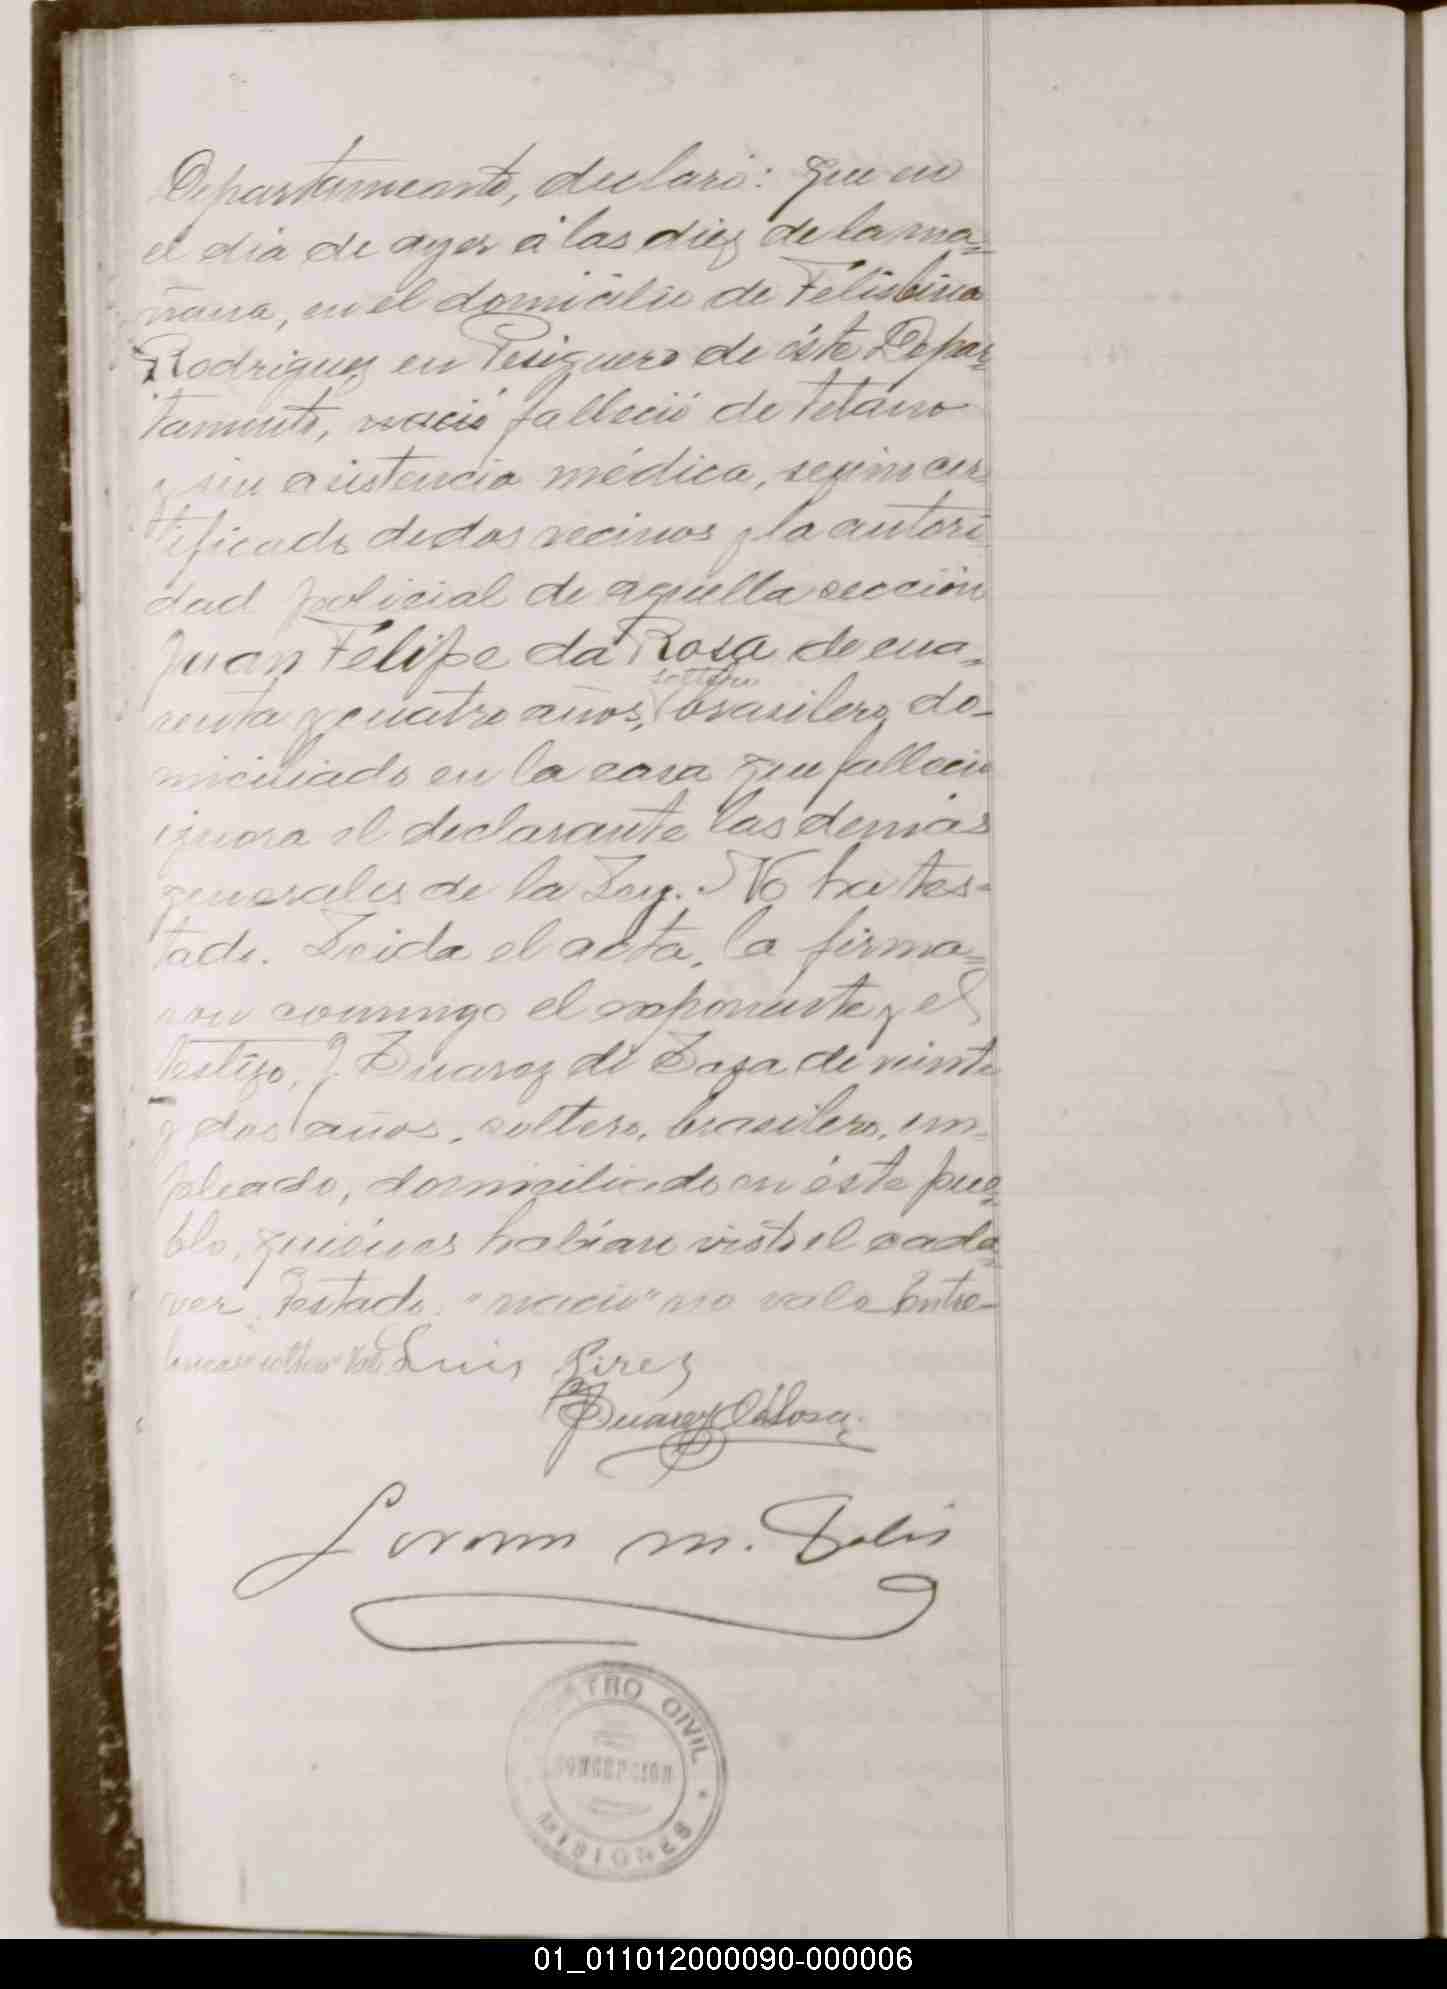 Departamento, declaró: Que en
el dia de ayer á las diez de la ma=
ñana, en el domicilio de Félisbina
Rodriguez en Persiguero de éste Depar=
tamento, nació falleció de tétano
y sin asistencia médica, segun cer=
tificado de dos vecinos y la autori
dad policial de aquella sección
Juan Félipe da Rosa de cua=
soltero
renta y cuatro años, brasilero, do=
miciliado en la casa que falleció
ignora el declarante las demás
generales de la Ley. No ha tes=
tado. Leida el acta, la firma=
ron conmigo el exponente y el
testigo, J. Suarez di Laza de veinte
y dos años, soltero, brasilero, em=
pleado, domiciliado en éste pue=
blo, quiénes habían visto el cada=
ver. Testado: "nació" no vale Entre=
lineas "soltero" Vale Luis Pirez
Lorenzo M.
REGISTRO CIVIL
CONCEPCION
MISIONES
01_011012000090-000006